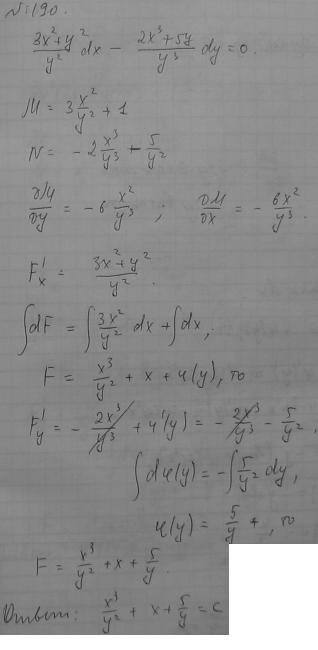 №190.
(3x²+y²)/y² dx − (2x³+5y)/y³ dy = 0.
M = 3 x²/y² + 1
N = −2 x³/y³ − 5/y²
∂M/∂y = −6 x²/y³ ; ∂M/∂x = − 6x²/y³.
F'ₓ = (3x²+y²)/y².
∫dF = ∫ 3x²/y² dx + ∫dx,
F = x³/y² + x + φ(y), то
F'ᵧ = − 2x³/y³ + φ'(y) = − 2x³/y³ − 5/y²,
∫dφ(y) = −∫ 5/y² dy,
φ(y) = 5/y + , то
F = x³/y² + x + 5/y.
Ответ: x³/y² + x + 5/y = C